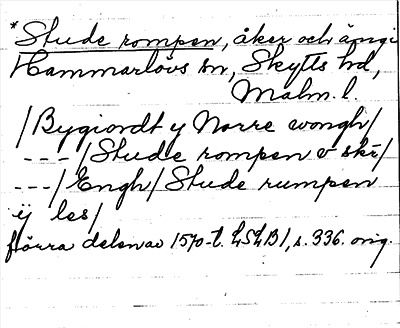 *Stude rompen, åker och ängi
Hammarlövs sn, Skytts hd,
Malm. l.
/Bygiordt y Norre wongh/
---/Stude rompen v skr/
---/Engh/Stude rumpen
ij les/
förra delen av 1570-t. LSLB1, s. 336. orig.